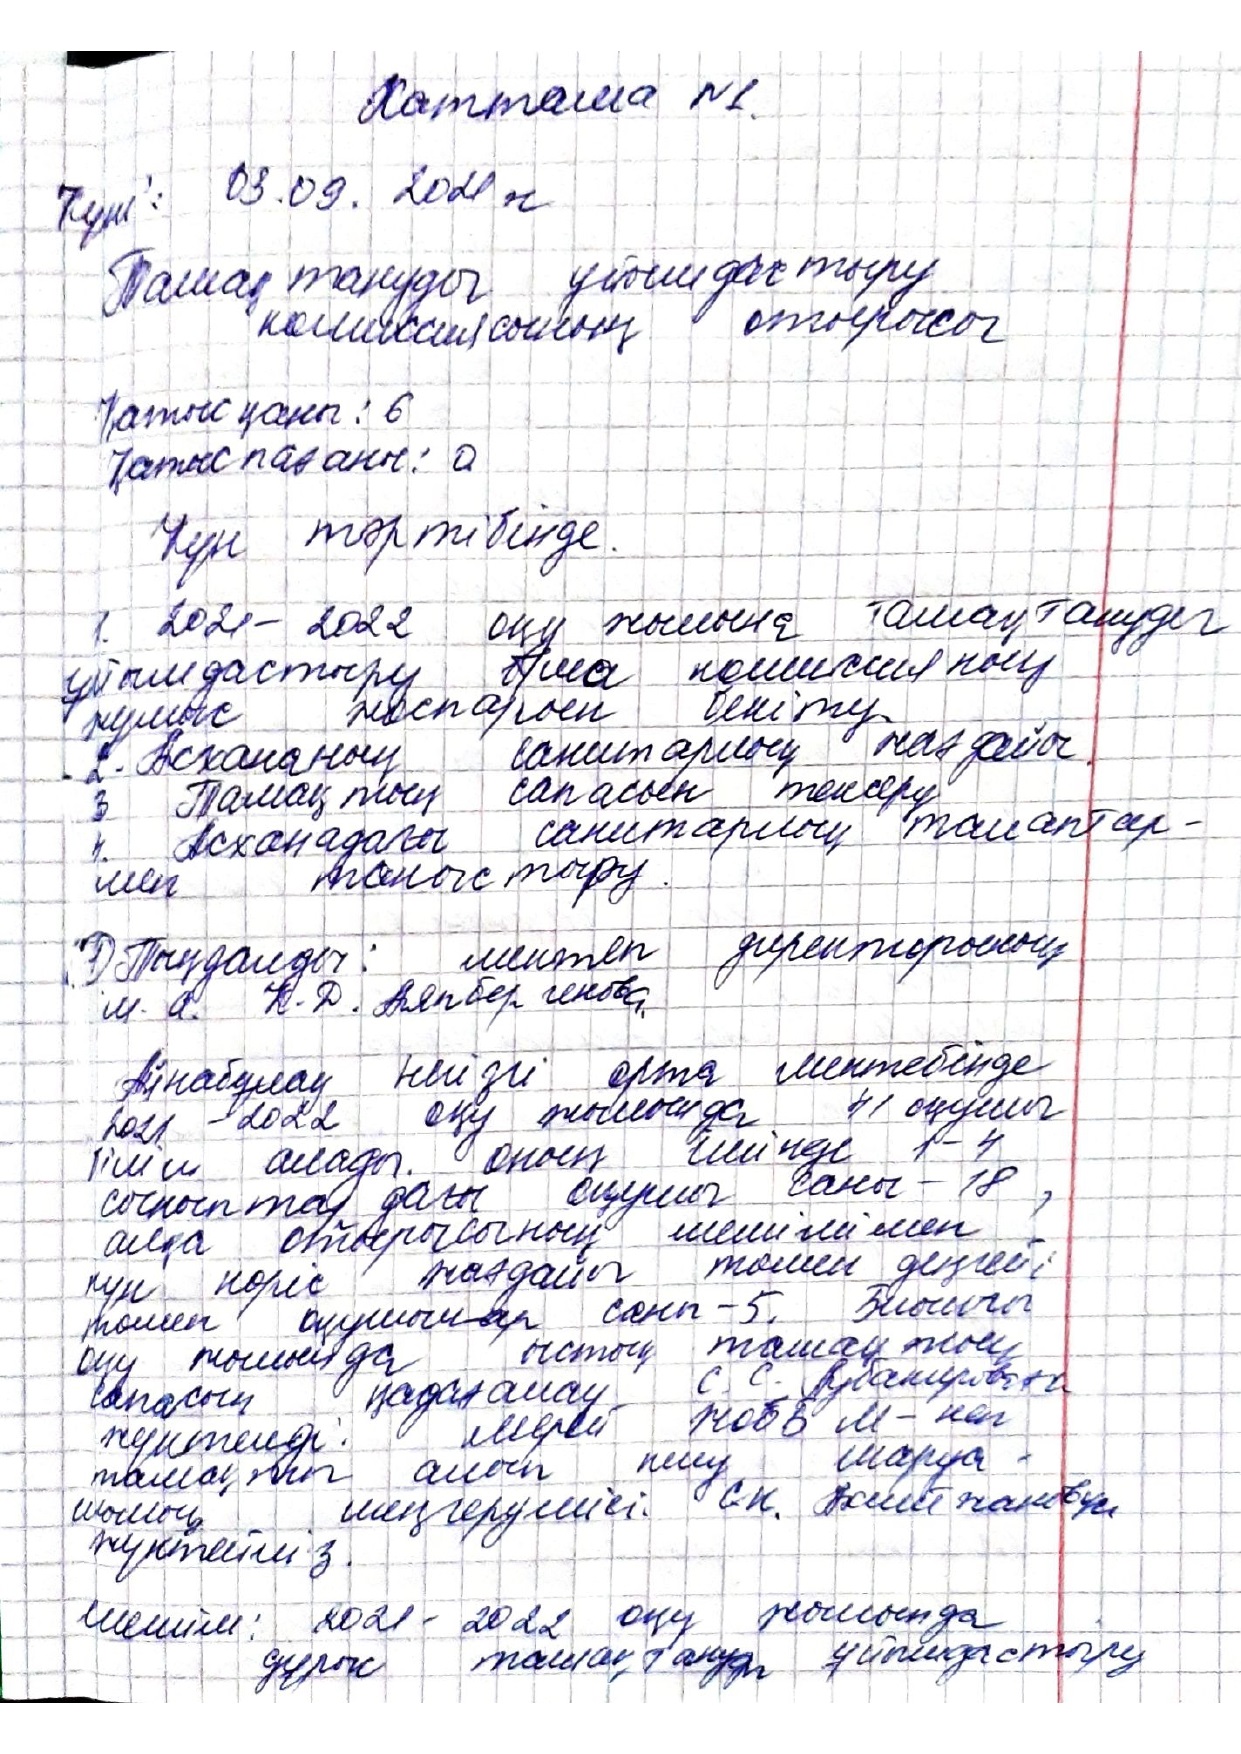 Хаттама №1.
Күні: 03.09.2021 ж
Тамақтануды ұйымдастыру
комиссиясының отырысы
Қатысқаны: 6
Қатыспағаны: 0
Күн тәртібінде.
1. 2021-2022 оқу жылына тамақтануды
ұйымдастыру комиссияның
жұмыс жоспарын бекіту.
2. Асхананың санитарлық жағдайы.
3 Тамақтың сапасын тексеру
4. Асханадағы санитарлық талаптар-
мен таныстыру.
1) Тыңдалды: мектеп директорының
м.а. К.Д. Аяпбергенова.
Айнабұлақ негізгі орта мектебінде
2021-2022 оқу жылында 41 оқушы
білім алады. оның ішінде 1-4
сыныптағы дағы оқушы саны-18,
алқа отырысының шешімімен
күн көріс жағдайы төмен деңгейі
төмен оқушылар саны-5. Биылғы
оқу жылында ыстық тамақтың
сапасын қадағалау С.С.
жүктелді. Мерей ЖО ББ М-нен
тамақты алып келу шаруа-
шылық меңгерушісі. С.К.
жүктейміз.
Шешім: 2021-2022 оқу жылында
дұрыс тамақтануды ұйымдастыру